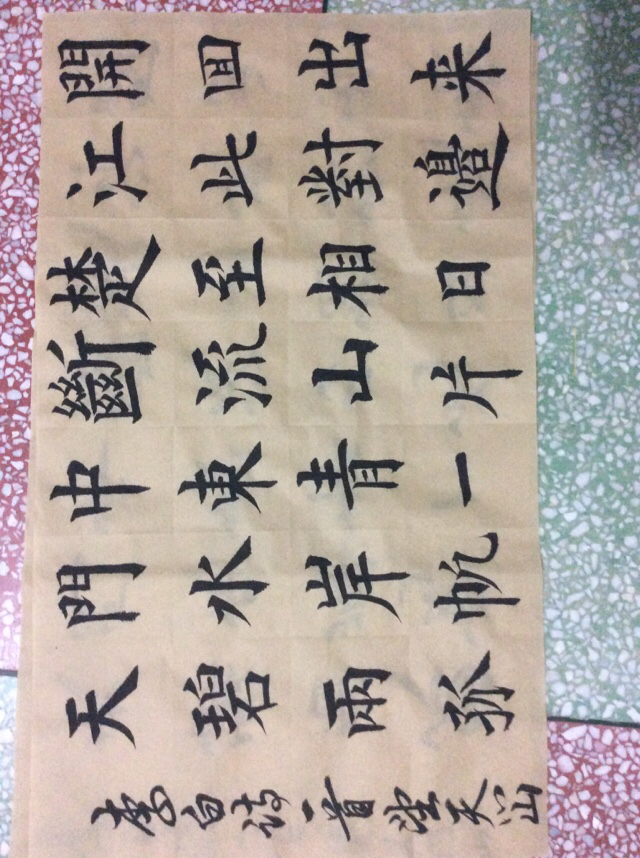 天門中斷楚江開
碧水東流至此回
兩岸青山相對出
孤帆一片日邊来
李白诗一首望天门山